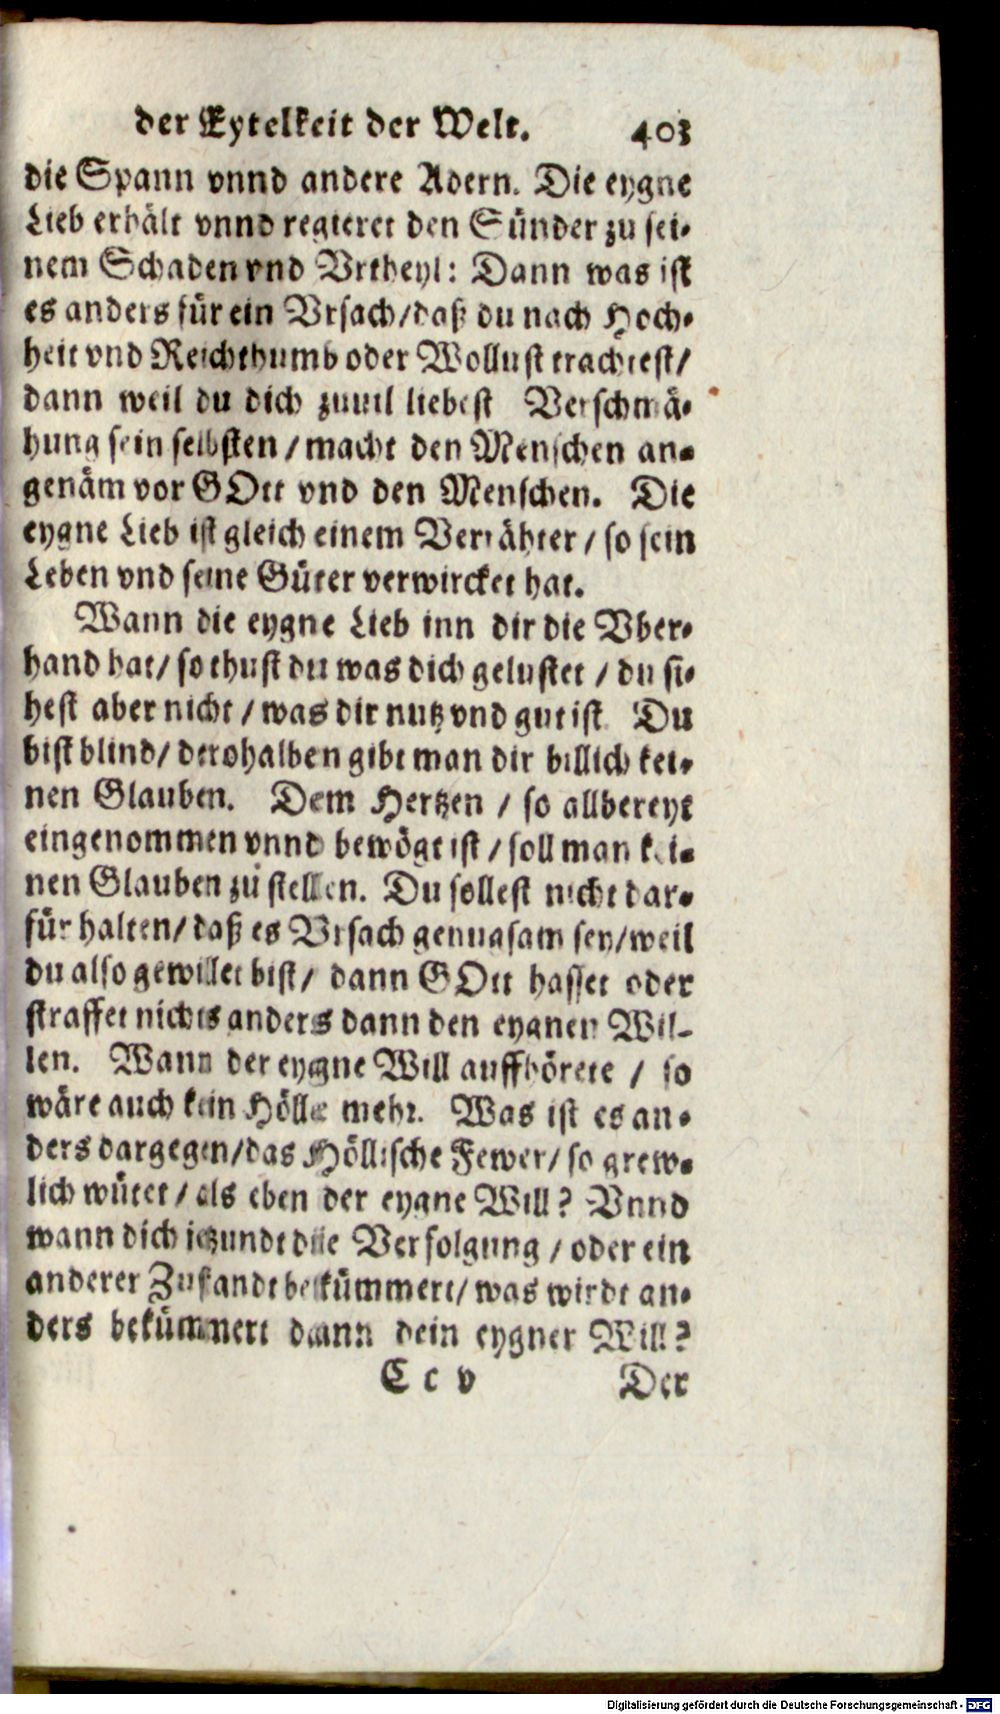 der Eytelkeit der Welt. 403
die Spann vnnd andere Adern. Die eygne
Lieb erhält vnnd regieret den Sünder zu sei-
nem Schaden vnd Vrtheyl: Dann was ist
es anders für ein Vrsach/daß du nach Hoch-
heit vnd Reichthumb oder Wollust trachtest/
dann weil du dich zuuil liebest Verschmä-
hung sein selbsten / macht den Menschen an-
genäm vor GOtt vnd den Menschen. Die
eygne Lieb ist gleich einem Verrähter / so sein
Leben vnd seine Güter verwircket hat.
Wann die eygne Lieb inn dir die Vber-
hand hat/ so thust du was dich gelustet / du si-
hest aber nicht / was dir nutz vnd gut ist Du
bist blind/ derohalben gibt man dir billich kei-
nen Glauben. Dem Hertzen / so allbereyt
eingenommen vnnd bewögt ist / soll man kei-
nen Glauben zu stellen. Du sollest nicht dar-
für halten/ daß es Vrsach genugsam sey/weil
du also gewillet bist/ dann GOtt hasset oder
straffet nichts anders dann den eygnen Wil-
len. Wann der eygne Will auffhörete / so
wäre auch kein Hölle mehr. Was ist es an-
ders dargegen/das Höllische Fewer/ so grew-
lich wütet / als eben der eygne Will? Vnnd
wann dich ietzundt die Verfolgung / oder ein
anderer Zustandt bekümmert/ was wirdt an-
ders bekümmert dann dein eygner Will?
C c v Der
Digitalisierung gefördert durch die Deutsche Forschungsgemeinschaft - DFG